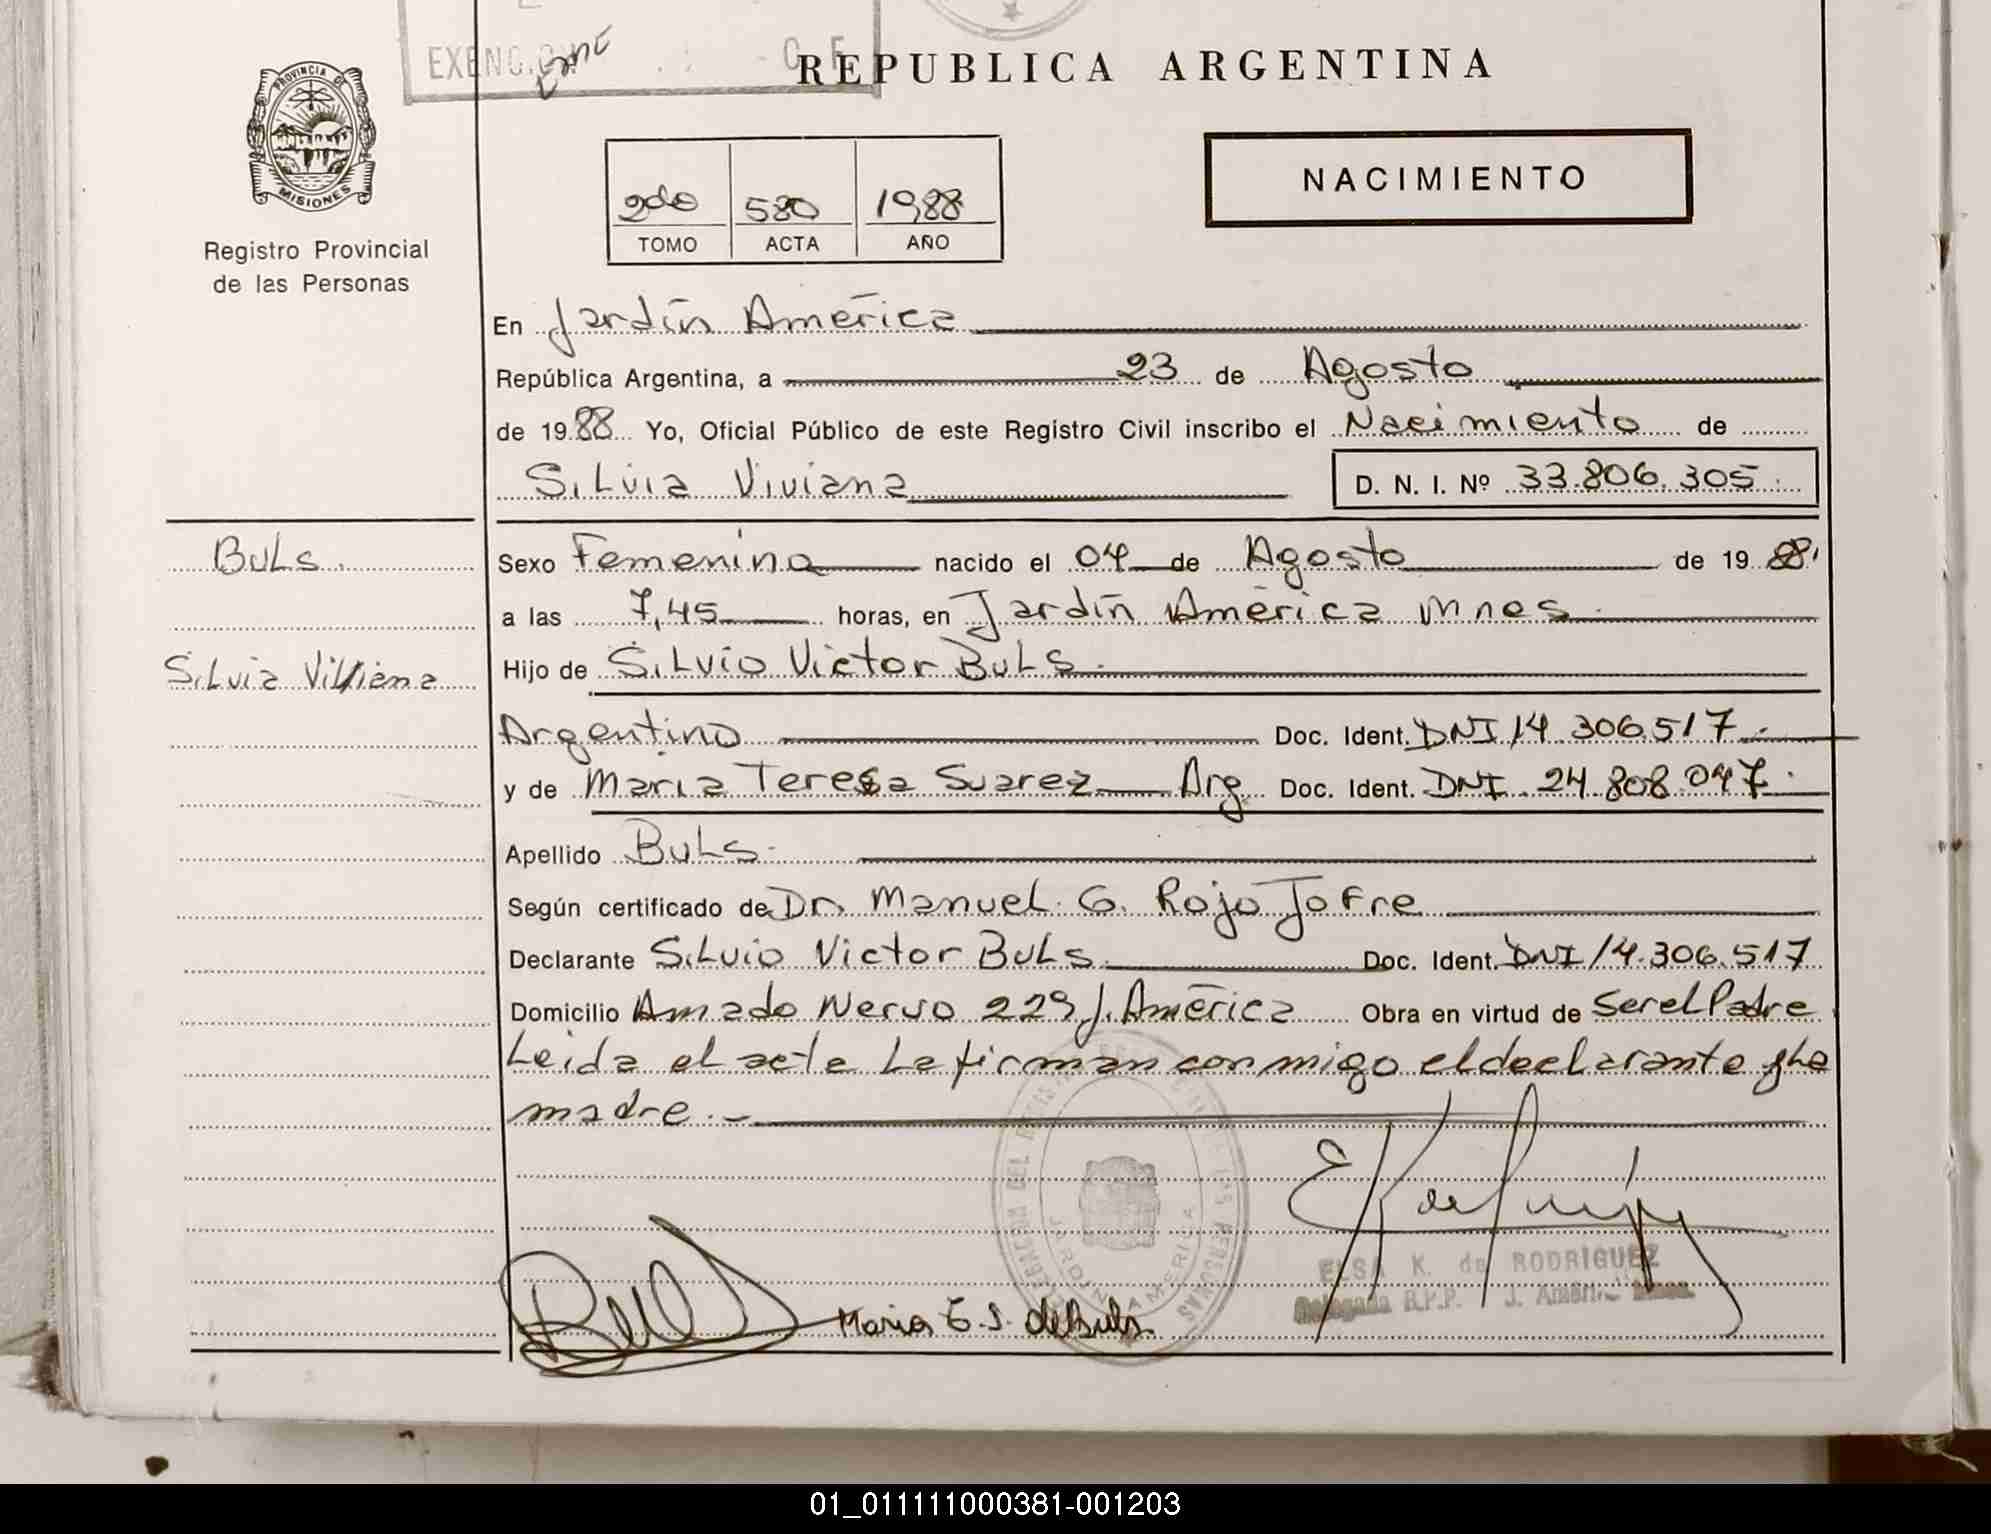 EXENC.
REPUBLICA ARGENTINA
PROVINCIA DE
MISIONES
Registro Provincial
de las Personas
2do 580 1988
TOMO ACTA AÑO
NACIMIENTO
En Jardín América
República Argentina, a 23 de Agosto
de 1988 Yo, Oficial Público de este Registro Civil inscribo el Nacimiento de
Silvia Viviana D. N. I. Nº 33.806.305
Buls.
Sexo Femenina nacido el 04 de Agosto de 1988
a las 7,45 horas, en Jardín América Mnes.
Silvia Viviana
Hijo de Silvio Victor Buls.
Argentino Doc. Ident. DNI 14.306.517
y de Maria Teresa Suarez Arg. Doc. Ident. DNI 24.808.047.
Apellido Buls.
Según certificado de Dr. Manuel G. Rojo Jofre
Declarante Silvio Victor Buls. Doc. Ident. DNI 14.306.517
Domicilio Amado Nervo 229 J. América Obra en virtud de Ser el Padre
Leida el acta la firman conmigo el declarante y la
madre.-
JARDIN AMERICA
ELSA K. de RODRIGUEZ
Delegada R.P.P. J. Améri
Maria T. S. de Buls.
01_011111000381-001203